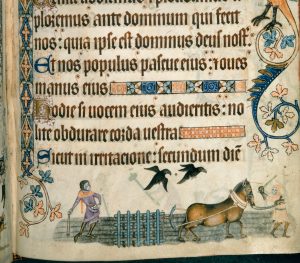 ploremus ante dominum qui fecit
nos: quia ipse est dominus deus nost
Et nos populus pascue eius: & oues
manus eius
Hodie si uocem eius audieritis: no
lite obdurare corda uestra
Sicut in irritacione: secundum die